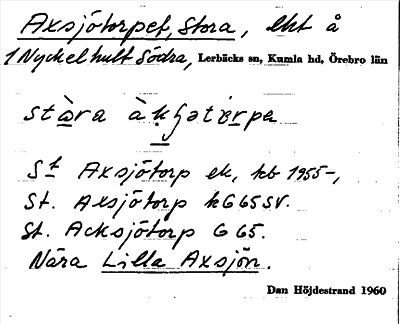 Axsjötorpet, Stora, lht å
1 Nyckelhult Södra, Lerbäcks sn, Kumla hd, Örebro län
St Axsjötorp ek, kb 1955-,
St. Axsjötorp hG65SV.
St. Acksjötorp G 65.
Nära Lilla Axsjön.
Dan Höjdestrand 1960